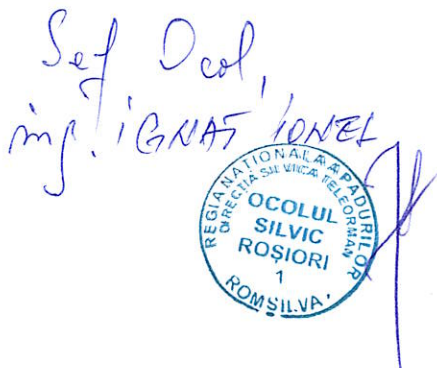 Șef Ocol,
ing. IGNAT IONEL
REGIA NATIONALA A PADURILOR
DIRECȚIA SILVICA TELEORMAN
OCOLUL
SILVIC
ROȘIORI
1
ROMSILVA